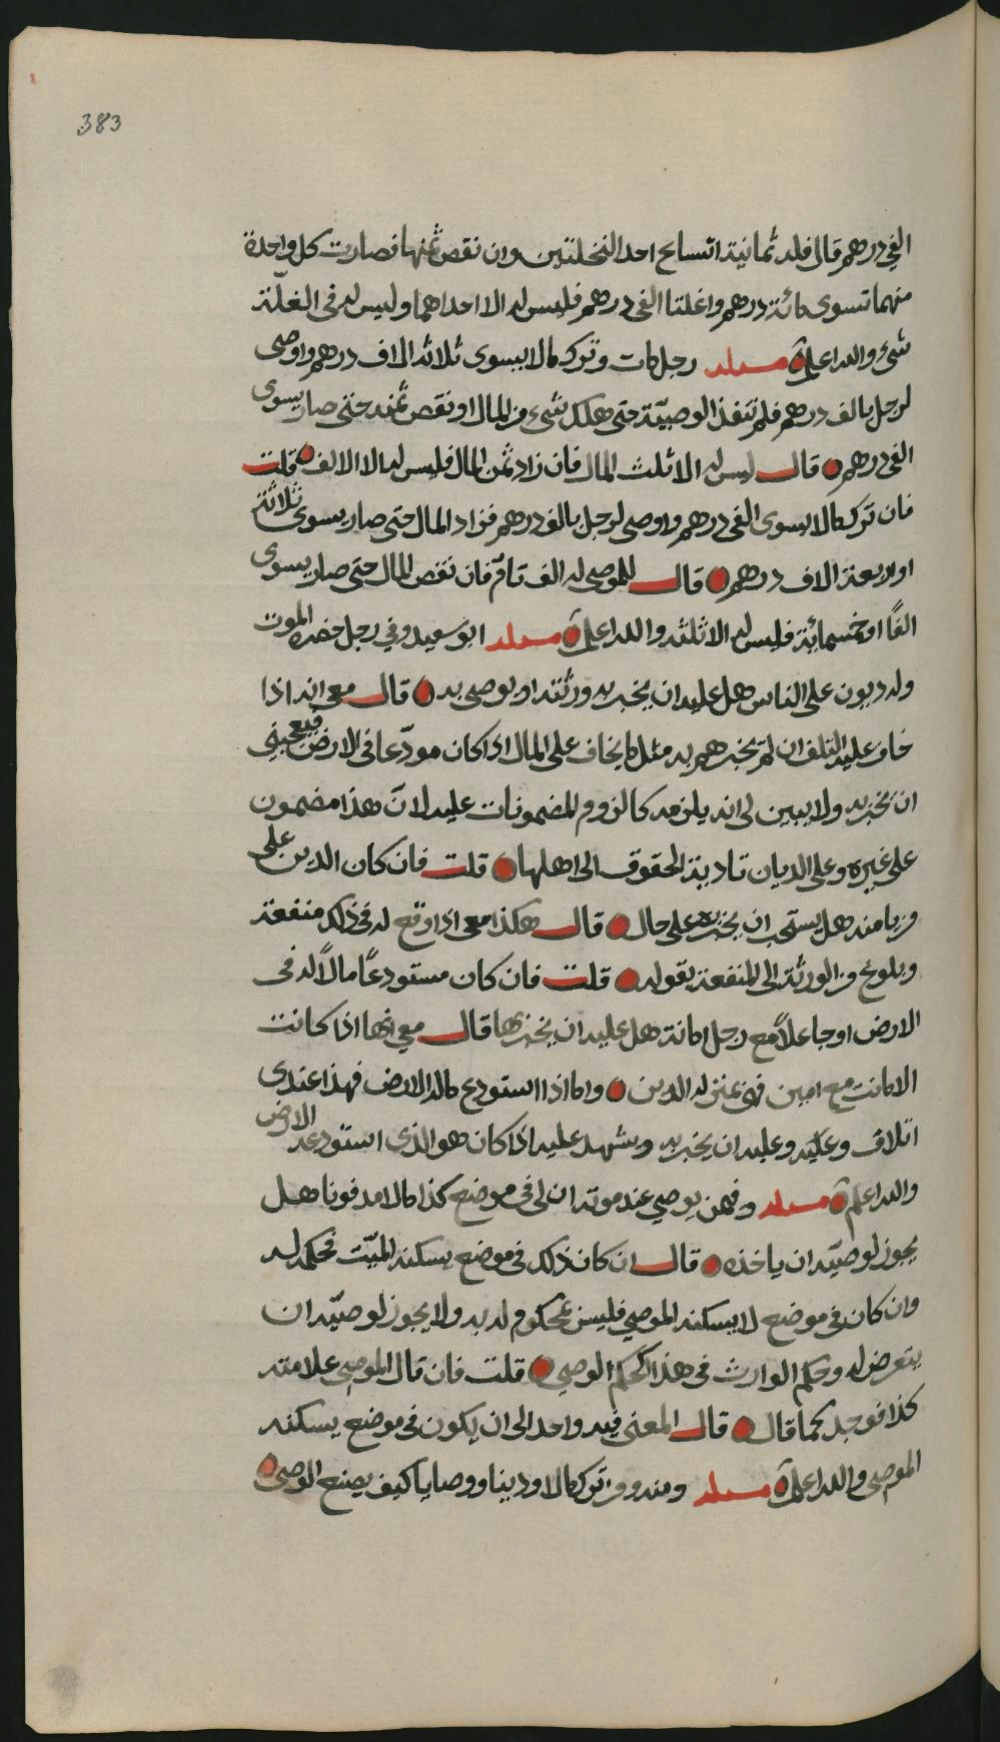 383
الفي درهم قال فله ثمانية اتساع احد النخلتين وان نقص ثمنها فصارت كل واحدة
منهما تسوى مائة درهم واغلتا الفي درهم فليس له الا احداهما وليس له في الغلّة
شيء والله اعلم مسئلة رجل مات وترك مالا يسوى ثلاثه الاف درهم واوصى
لرجل بالف درهم فلم تنفذ الوصيّة حتى هلك شيء من المال او نقص ثمنه حتى صار يسوى
الفي درهم قال ليس له الا ثلث المال فان زاد ثمن المال فليس له الا الالف قلت
فان ترك مالا يسوى الفي درهم واوصى لرجل بالف درهم فزاد المال حتى صار يسوى ثلاثة
او اربعة الاف درهم قال للموصى له الف تام فان نقص المال حتى صار يسوى
الفًا او خمسمائة فليس له الا ثلثه والله اعلم مسئلة ابو سعيد وفي رجل حضره الموت
وله ديون على الناس هل عليه ان يخبر به ورثته او يوصى به قال معي انه اذا
خاف عليه التلف ان لم يخبرهم به مثل ما يخاف على المال اذا كان مودّعا في الارض فيعجبني
ان يخبر به ولا يبين لي انه يلزمه كالزوم المضمونات عليه لانّ هذا مضمون
على غيره وعلى الديان تادية الحقوق الى اهلها قلت فان كان الدين على
من يامنه هل يستحب ان يخبر به على حال قال هكذا معي اذا وقع له في ذلك منفعة
وبلوغ من الورثة الى المنفعة بقوله قلت فان كان مستودعًا مالًا له في
الارض او جاعلًا مع رجل امانة هل عليه ان يخبر بها قال معي انها اذا كانت
الامانت مع امين فهي بمنزله الدين واما اذا استودع ماله الارض فهذا عندي
اتلاف وعليه وعليه ان يخبر به ويشهد عليه اذا كان هو الذي استودعه الارض
والله اعلم مسئلة وفيمن يوصي عند موته ان لي في موضع كذا مالا مدفونا هل
يجوز لوصيّه ان ياخذه قال ان كان ذلك في موضع يسكنه الميّت فحكمه له
وان كان في موضع لا يسكنه الموصي فليس بمحكوم له به ولا يجوز لوصيّه ان
يتعرض له وحكم الوارث في هذا كحكم الوصي قلت فان قال الموصي علامته
كذا فوجد كما قال قال المعنى فيه واحد الى ان يكون في موضع يسكنه
الموصي والله اعلم مسئلة ومنه ومن ترك مالا ودينا ووصايا كيف يصنع الوصي